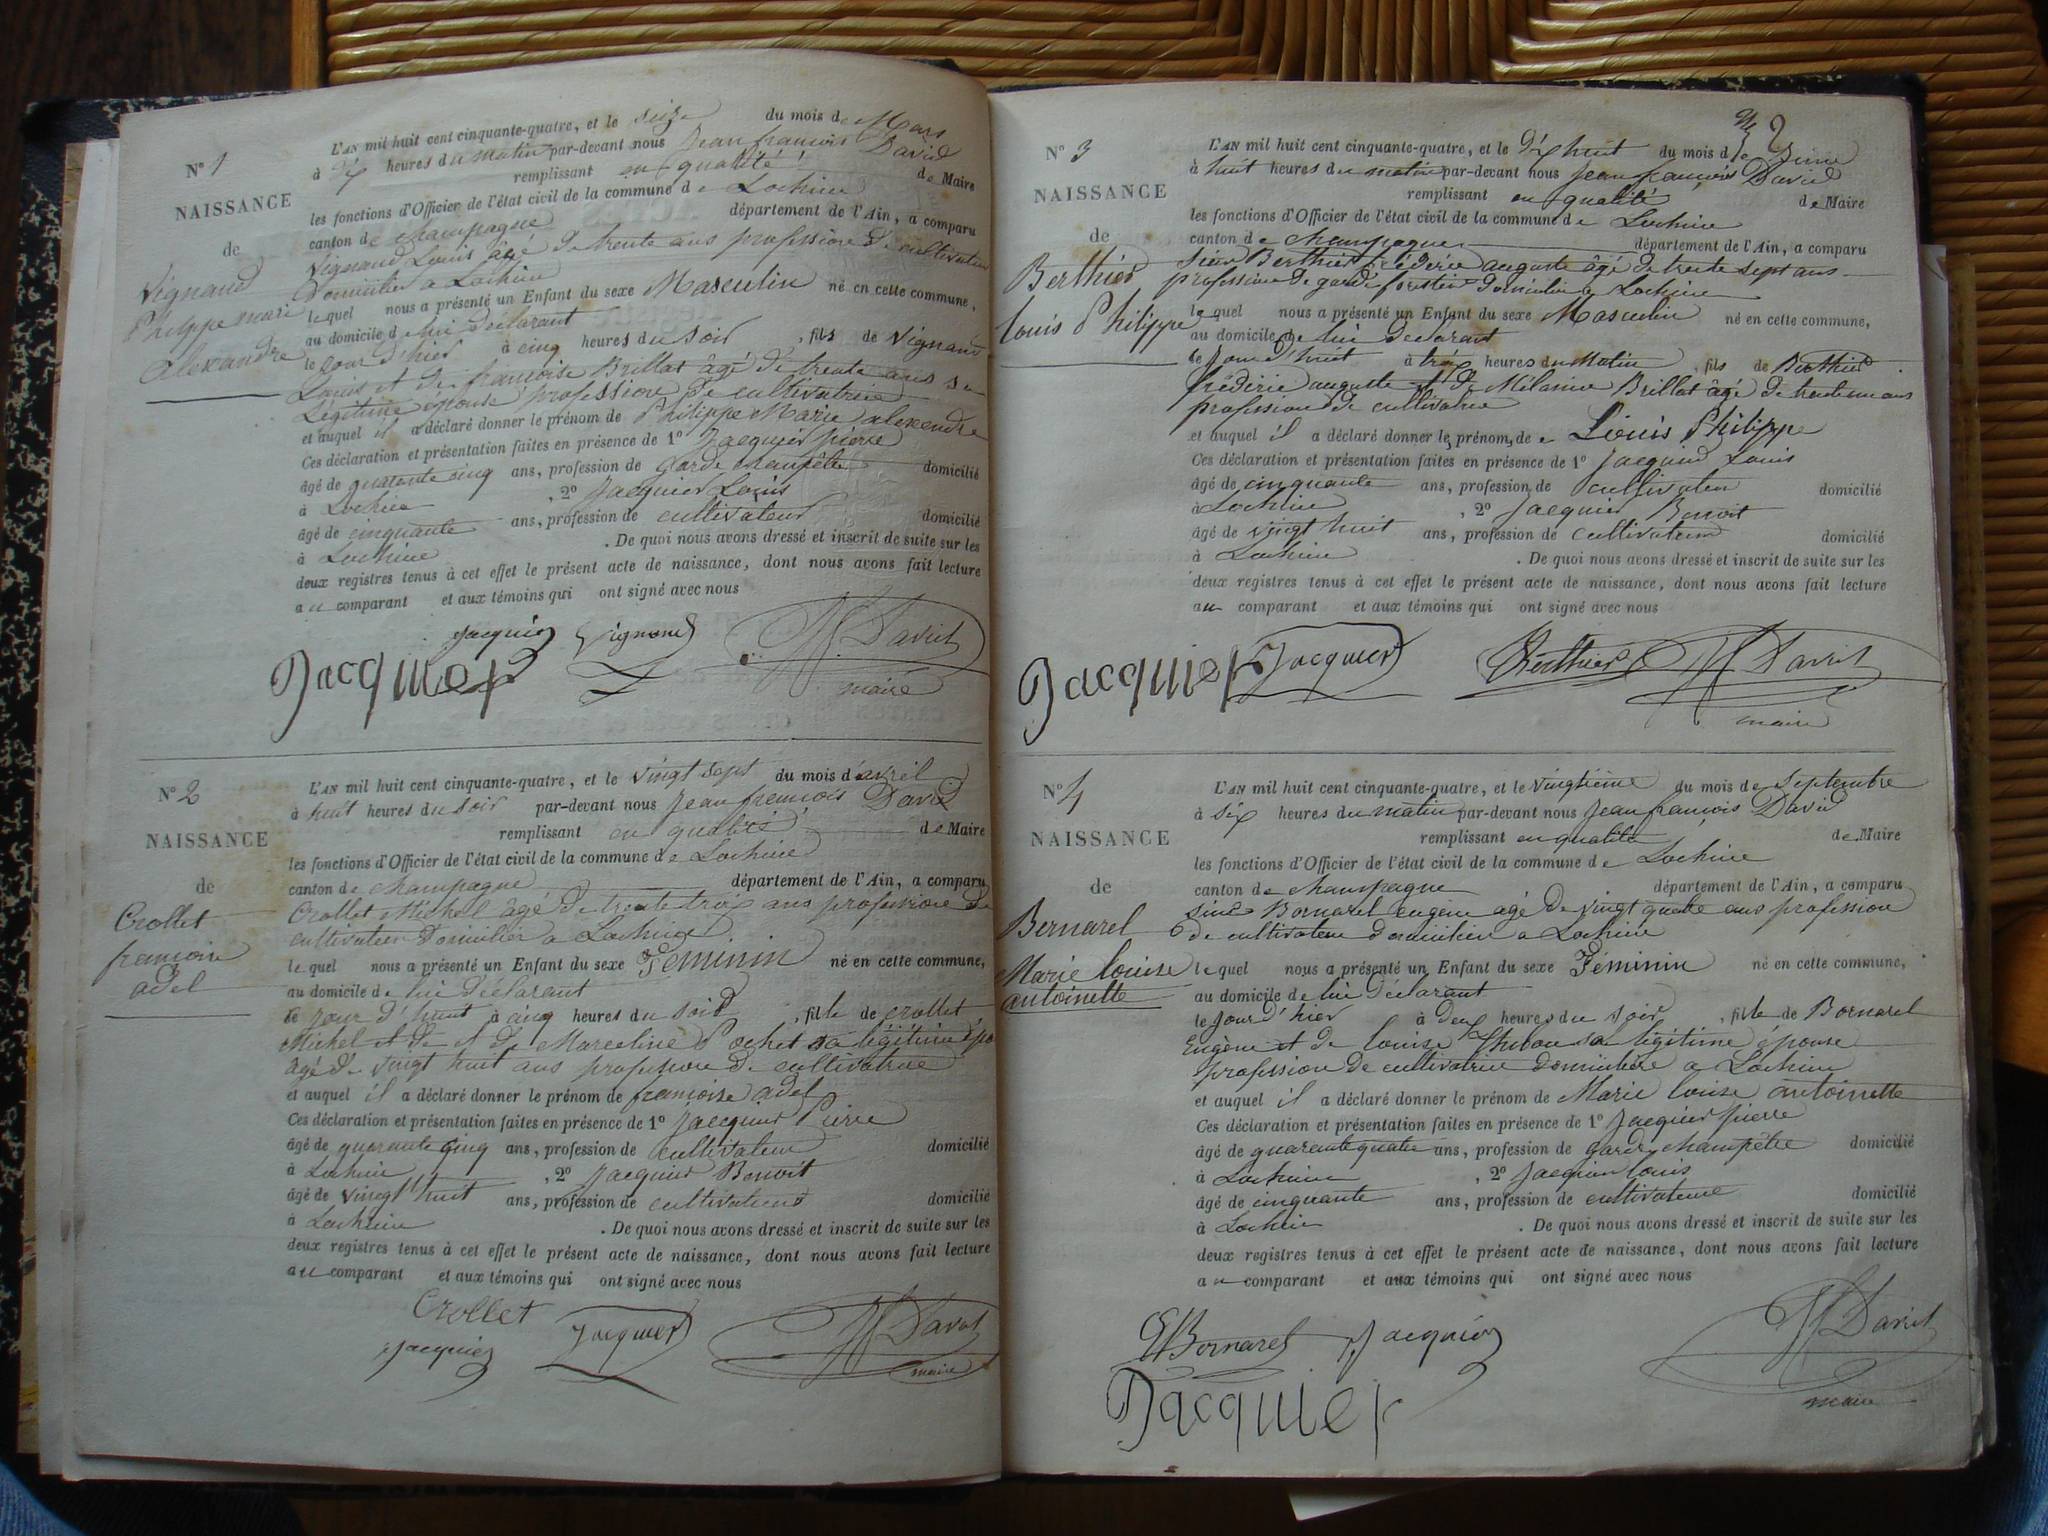 N° 1
NAISSANCE
de
Vignand
Philippe marie
alexandre
L'AN mil huit cent cinquante-quatre, et le seize du mois de Mars
à dix heures du matin par-devant nous Jean françois David
remplissant en qualité de Maire
les fonctions d'Officier de l'état civil de la commune de Lochieu
canton de champagne département de l'Ain, a comparu
Vignand Louis âgé de trente ans profession de cultivateur
Domicilier a Lochieu
lequel nous a présenté un Enfant du sexe Masculin né en cette commune,
au domicile de lui déclarant
le jour d'hier à cinq heures du soir, fils de Vignand
Louis et de françoise Brillat âgé de trente ans sa
Légitime épouse profession de cultivatrice
et auquel il a déclaré donner le prénom de Philippe Marie alexendre
Ces déclaration et présentation faites en présence de 1° Jacquier pierre
âgé de quarante cinq ans, profession de garde champêtre domicilié
à Lochieu, 2° Jacquier Louis
âgé de cinquante ans, profession de cultivateur domicilié
à Lochieu. De quoi nous avons dressé et inscrit de suite sur les
deux registres tenus à cet effet le présent acte de naissance, dont nous avons fait lecture
au comparant et aux témoins qui ont signé avec nous
Jacquier Vignand David
Jacquier maire
N° 2
NAISSANCE
de
Crollet
francoise
adel
L'AN mil huit cent cinquante-quatre, et le vingt sept du mois d'avril
à huit heures du soir par-devant nous Jean francois David
remplissant en qualité de Maire
les fonctions d'Officier de l'état civil de la commune de Lochieu
canton de champagne département de l'Ain, a comparu
Crollet Michel âgé de trente trois ans profession de
cultivateur domicilier a Lochieu
lequel nous a présenté un Enfant du sexe Féminin né en cette commune,
au domicile de lui déclarant
le jour d'huit à cinq heures du soir, fille de crollet
Michel et de Marceline Pochet sa légitime épo
âgé de vingt huit ans profession de cultivatrice
et auquel il a déclaré donner le prénom de françoise adel
Ces déclaration et présentation faites en présence de 1° Jacquier Pierre
âgé de quarante cinq ans, profession de cultivateur domicilié
à Lochieu, 2° Jacquier Benoit
âgé de vingt huit ans, profession de cultivateur domicilié
à Lochieu. De quoi nous avons dressé et inscrit de suite sur les
deux registres tenus à cet effet le présent acte de naissance, dont nous avons fait lecture
au comparant et aux témoins qui ont signé avec nous
Crollet
Jacquier Jacquier David
maire
2
N° 3
NAISSANCE
de
Berthier
Louis Philippe
L'AN mil huit cent cinquante-quatre, et le dix huit du mois de
à huit heures du matin par-devant nous Jean françois David
remplissant en qualité de Maire
les fonctions d'Officier de l'état civil de la commune de Lochieu
canton de champagne département de l'Ain, a comparu
sieur Berthier frédéric auguste âgé de trente sept ans
profession de garde forestier domicilier a Lochieu
lequel nous a présenté un Enfant du sexe Masculin né en cette commune,
au domicile de lui déclarant
le jour d'huit à trois heures du Matin, fils de Berthier
frédéric auguste et de Mélanie Brillat âgé de trente un ans
profession de cultivatrice
et auquel il a déclaré donner les prénom de Louis Philippe
Ces déclaration et présentation faites en présence de 1° Jacquier Louis
âgé de cinquante ans, profession de cultivateur domicilié
à Lochieu, 2° Jacquier Benoit
âgé de vingt huit ans, profession de cultivateur domicilié
à Lochieu. De quoi nous avons dressé et inscrit de suite sur les
deux registres tenus à cet effet le présent acte de naissance, dont nous avons fait lecture
au comparant et aux témoins qui ont signé avec nous
Jacquier Jacquier Berthier David
maire
N° 4
NAISSANCE
de
Bernarel
Marie louise
antoinette
L'AN mil huit cent cinquante-quatre, et le vingtième du mois de Septembre
à six heures du matin par-devant nous Jean françois David
remplissant en qualite de Maire
les fonctions d'Officier de l'état civil de la commune de Lochieu
canton de champagne département de l'Ain, a comparu
sieur Bornarel eugène agé de vingt quatre ans profession
de cultivateur domicilier a Lochieu
lequel nous a présenté un Enfant du sexe Féminin né en cette commune,
au domicile de lui déclarant
le jour d'hier à deux heures du soir, fille de Bornarel
Eugène et de louise sa légitime épouse
profession de cultivatrice domicilière a Lochieu
et auquel il a déclaré donner le prénom de Marie louise antoinette
Ces déclaration et présentation faites en présence de 1° Jacquier pierre
âgé de quarante quatre ans, profession de garde champêtre domicilié
à Lochieu, 2° Jacquier louis
âgé de cinquante ans, profession de cultivateur domicilié
à Lochieu. De quoi nous avons dressé et inscrit de suite sur les
deux registres tenus à cet effet le présent acte de naissance, dont nous avons fait lecture
au comparant et aux témoins qui ont signé avec nous
E Bornarel Jacquier David
Jacquier maire